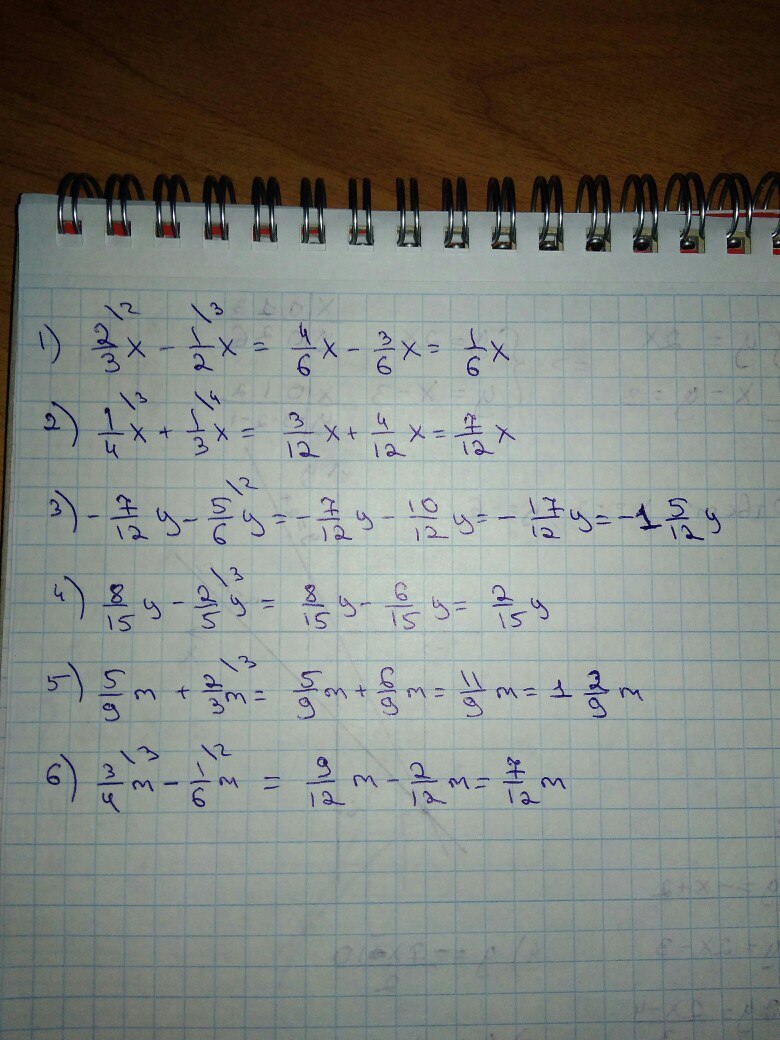 1) 2/3 \2 x - 1/2 \3 x = 4/6 x - 3/6 x = 1/6 x
2) 1/4 \3 x + 1/3 \4 x = 3/12 x + 4/12 x = 7/12 x
3) - 7/12 y - 5/6 \2 y = - 7/12 y - 10/12 y = - 17/12 y = -1 5/12 y
4) 8/15 y - 2/5 \3 y = 8/15 y - 6/15 y = 2/15 y
5) 5/9 m + 2/3 \3 m = 5/9 m + 6/9 m = 11/9 m = 1 2/9 m
6) 3/4 \3 m - 1/6 \2 m = 9/12 m - 2/12 m = 7/12 m